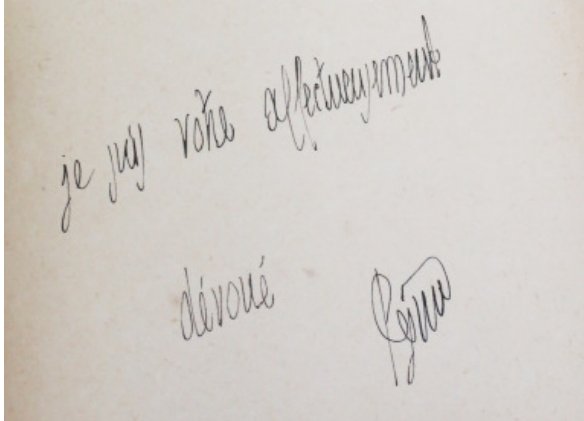 je suis votre affectueusement
dévoué